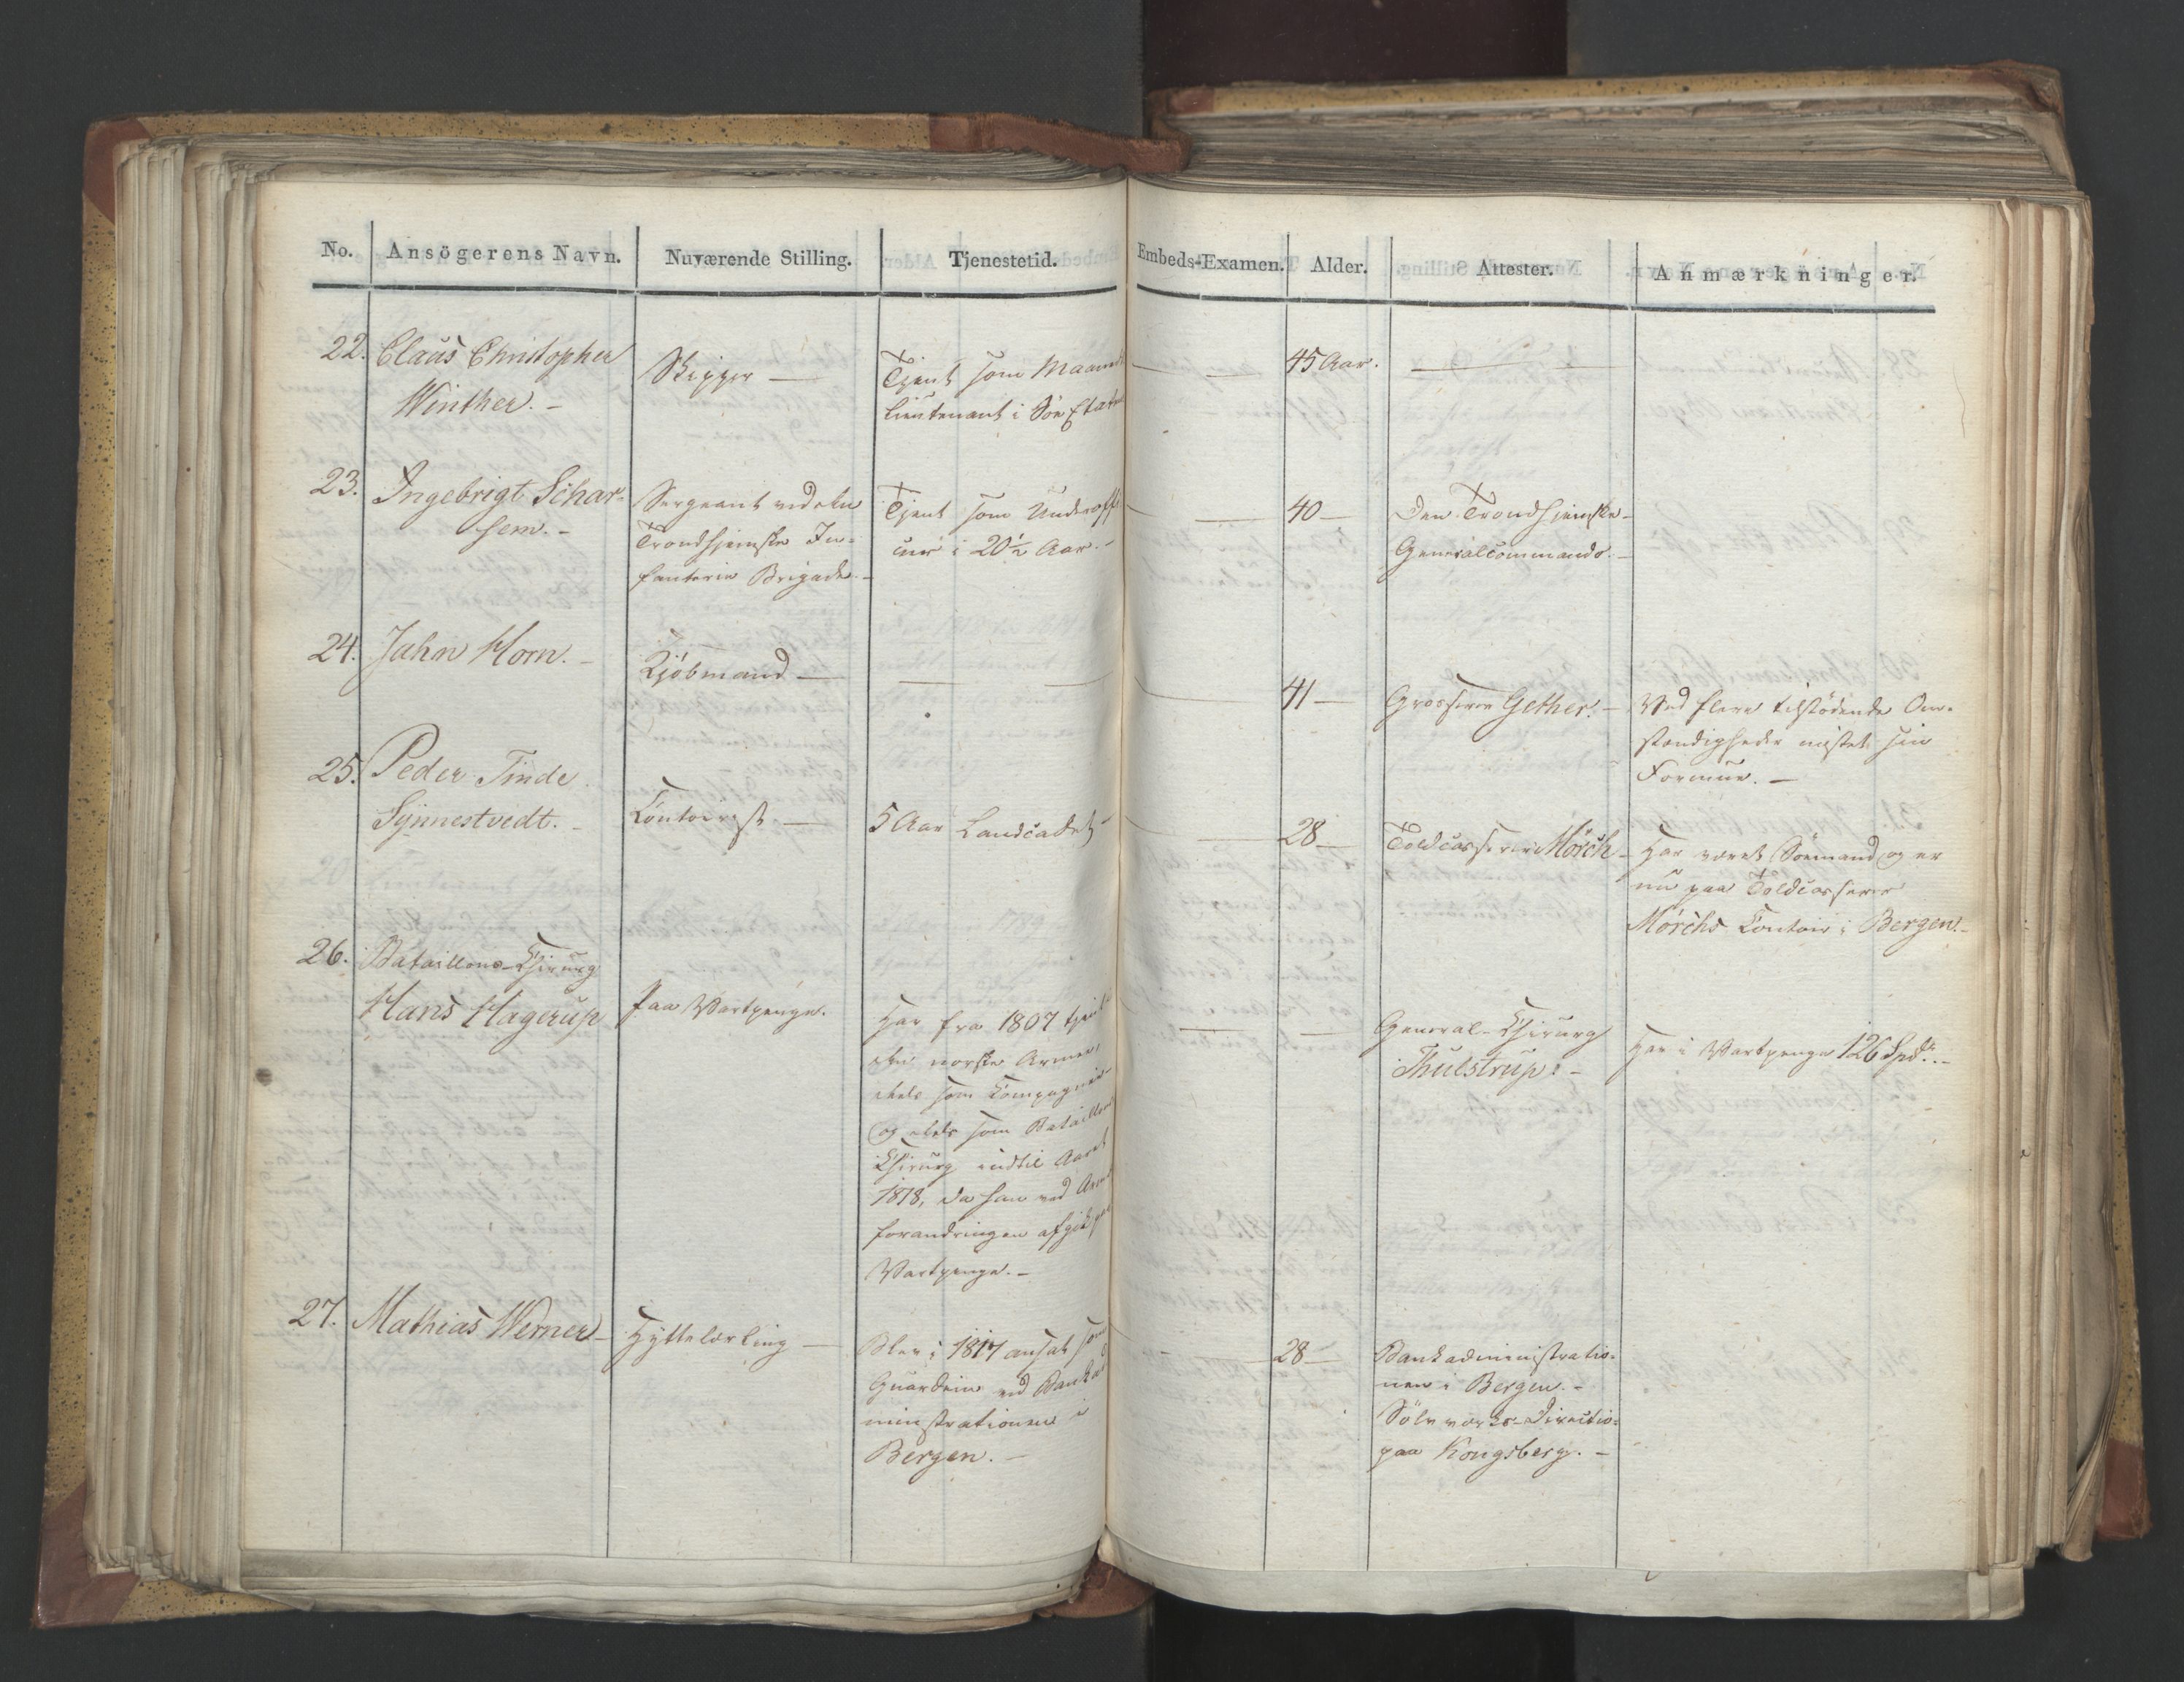 No.
Ansögerens Navn.
Nuværende Stilling.
Tjenestetid.
Embeds-Examen.
Alder.
Attester.
Anmærkninger.
22.
Claus Christopher
Winther. -
Skipper —
Tjent som Maaneds
Lieutenant i Söe Etaten
— —
45 Aar.
—
23.
Ingebrigt Schar-
sem. -
Sergeant ved den
Trondhjemske In-
fanterie Brigade. -
Tjent som Underoffi-
ceer i 20½ Aar. -
— —
40 —
Den Trondhjemske
Generalcommando. -
24.
Jahn Horn. -
Kjöbmand —
— —
41 —
Grosserer Gether. -
Ved flere tilstödende Om-
stændigheder mistet sin
Formue. -
25.
Peder Tinde
Synnestvedt. -
Contoirist. —
5 Aar Landcadet -
28 —
Toldcasserer Mörch -
Har været Söemand og er
nu paa Toldcasserer
Mörchs Contoir i Bergen. -
26.
Bataillons-Chirurg
Hans Hagerup
Paa Vartpenge.
Har fra 1807 tjent i
den norske Armee,
deels som Compagnie-
og deels som Bataillons
Chirurg indtil Aaret
1818, da han ved Armee
forandringen afgik paa
Vartpenge. -
— —
General-Chirurg
Thulstrup. -
Har i Vartpenge 126 Spd. -
27.
Mathias Werner -
Hyttelærling —
Blev i 1817 ansat som
Guardein ved Bankad
ministrationen i
Bergen. -
28 —
Bankadministratio-
nen i Bergen. -
Sölvværks-Directio-
paa Kongsberg. -